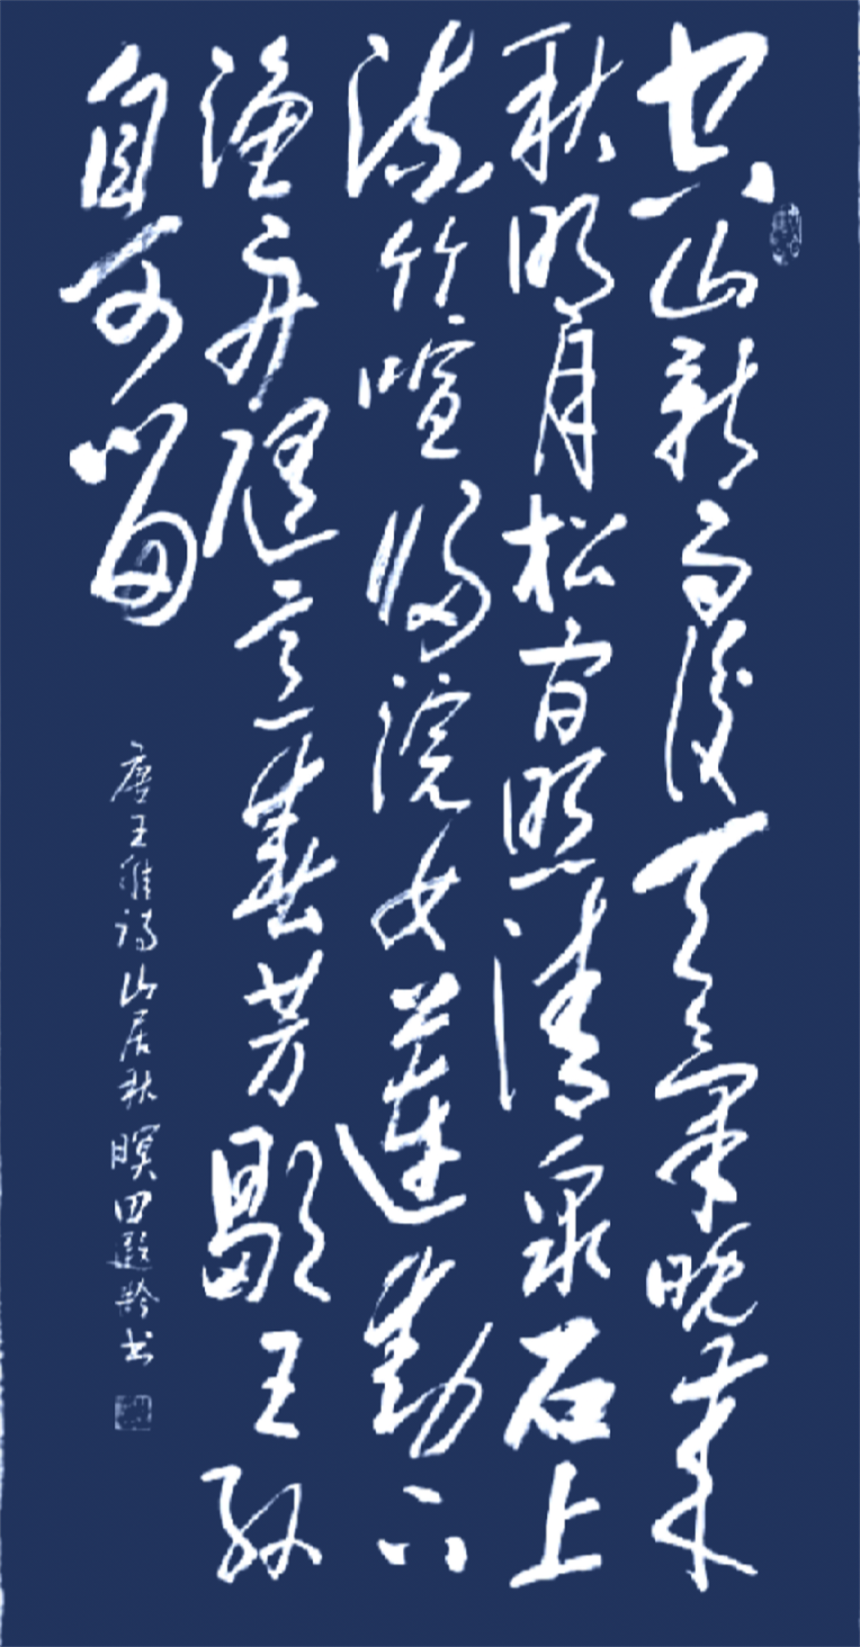 空山新雨後天氣晚來
秋明月松間照清泉石上
流竹喧歸浣女蓮動下
漁舟隨意春芳歇王孫
自可留
唐王維詩山居秋暝田遐齡书